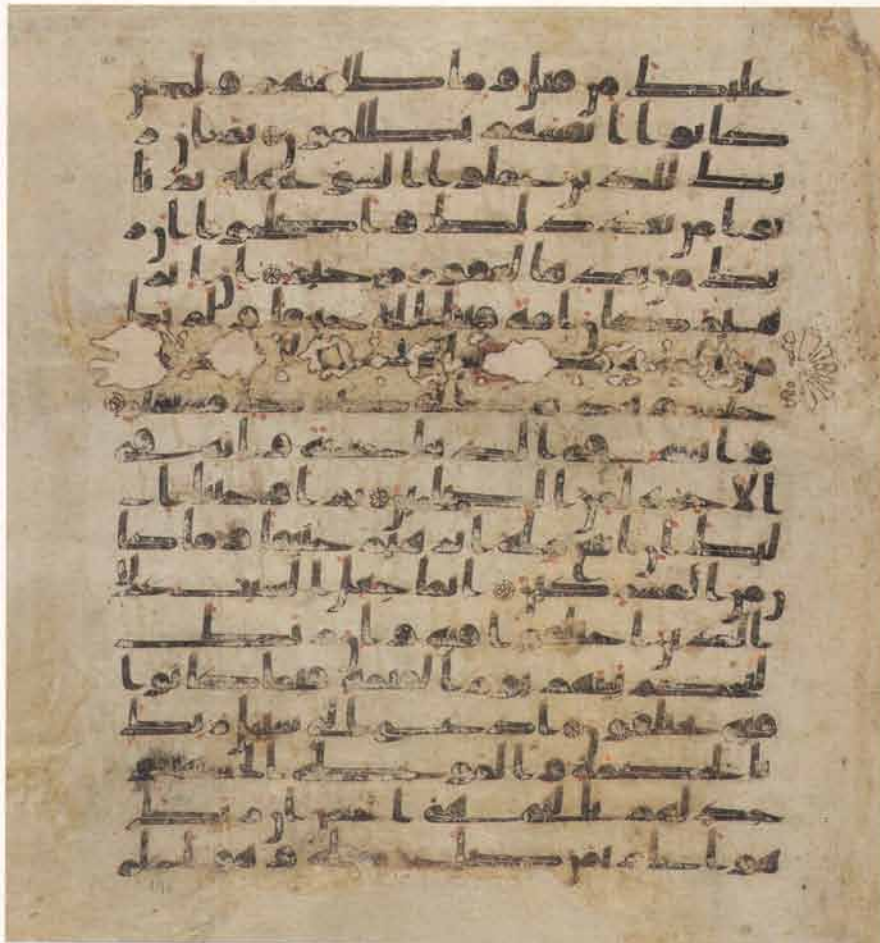 عليك من قبل وما ظلمنهم ولكن
كانوا انفسهم يظلمون ثم ان ر
بك للذين عملوا السو بجهلة ثم تا
بوا من بعد ذلك واصلحوا ان ر
بك من بعدها لغفور رحيم ان ابر
هيم كان امة قانتا لله حنيفا ولم يك
من
اجتبيه وهديه الى صرط مستقيم
واتينه في الدنيا حسنة وانه في
الاخرة لمن الصلحين ثم اوحينا ا
ليك ان اتبع ملة ابرهيم حنيفا وما كا
ن من المشركين انما جعل السبت على
الذين اختلفوا فيه وان ربك
ليحكم بينهم يوم القيمة فيما كانوا
فيه يختلفون ادع الى سبيل ربك
بالحكمة والموعظة الحسنة و
جدلهم بالتي هي احسن ان ربك
هو اعلم بمن ضل عن سبيله وهو اعلم